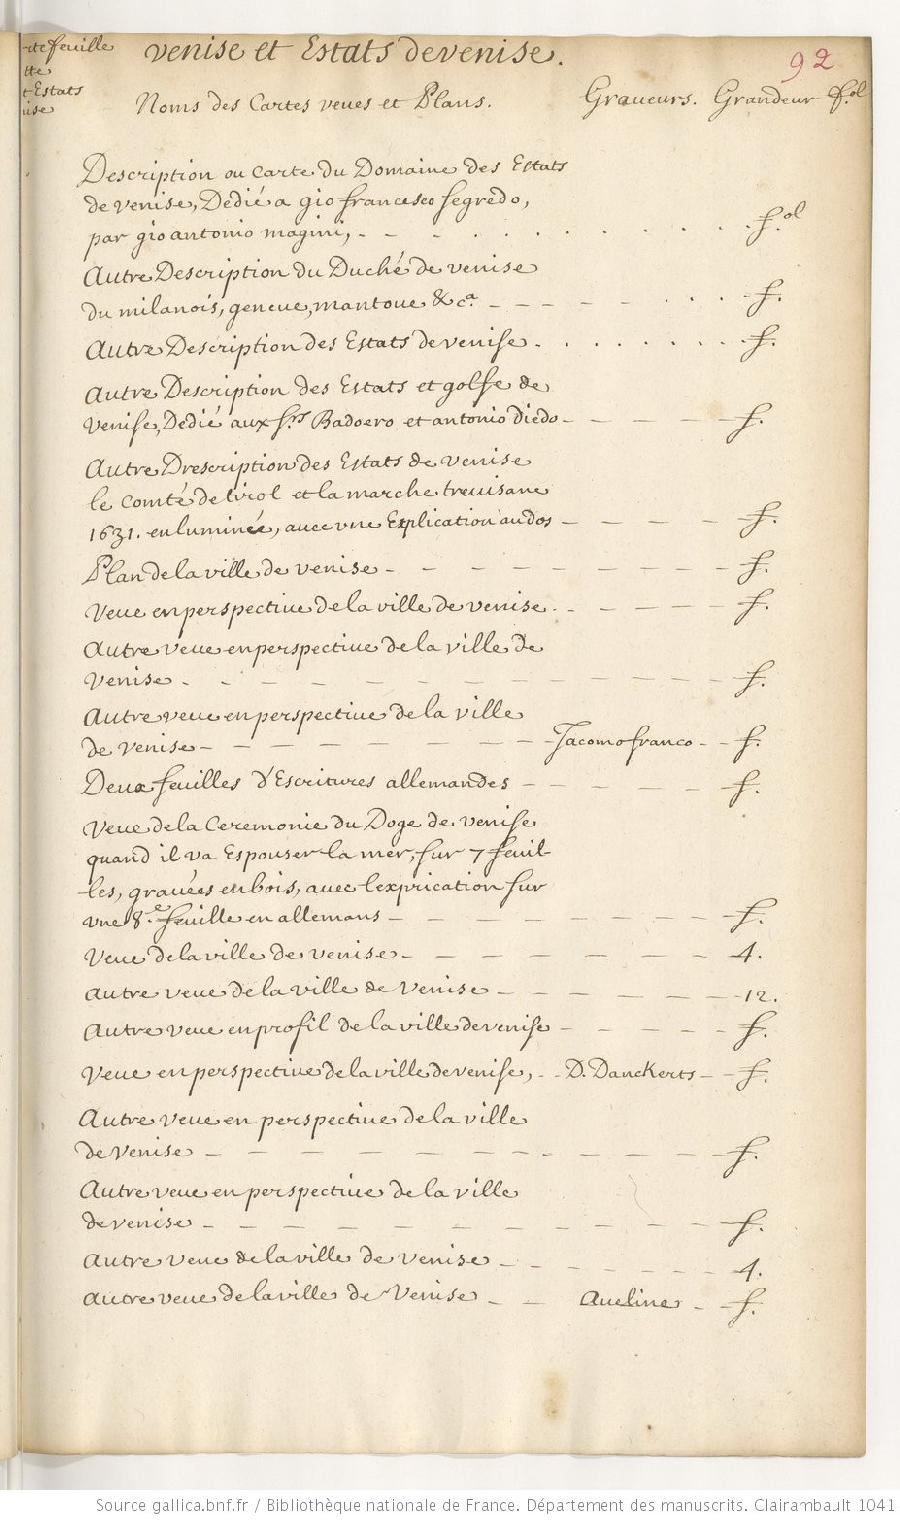 venise et Estats de venise.
92
feuille
Estats
Noms des Cartes veues et Plans. Graueurs. Grandeur f.ol
Description ou Carte du Domaine des Estats
de venise, Dedié a gio francesco segredo,
par gio antonio magini, f.ol
Autre Description du Duché de venise
du milanois, geneue, mantoue &ca. f.
Autre Description des Estats de venise. f.
Autre Description des Estats et golfe de
Venise, Dedié aux srs Badoero et antonio Diedo f.
Autre Drescription des Estats de venise
le Comté de tirol et la marche treuisane
1631. enluminée, auec vne Explication au dos f.
Plan de la ville de venise f.
Veue en perspectiue de la ville de venise. f.
Autre veue en perspectiue de la ville de
Venise f.
Autre veue en perspectiue de la ville
de venise Jacomo franco f.
Deux feuilles d'Escritures allemandes f.
Veue de la Ceremonie du Doge de venise
quand il va Espouser la mer, sur 7 feuil-
les, grauées en bois, auec l'exprication sur
vne 8.e feuille en allemans f.
Veue de la ville de venise 4.
autre veue de la ville de Venise 12.
Autre veue en profil de la ville de venise f.
Veue en perspectiue de la ville de venise, D. Danckerts f.
Autre veue en perspectiue de la ville
de venise f.
Autre veue en perspectiue de la ville
de venise f.
Autre veue de la ville de venise 4.
autre veue de la ville de Venise Aueline f.
Source gallica.bnf.fr / Bibliothèque nationale de France. Département des manuscrits. Clairambault 1041